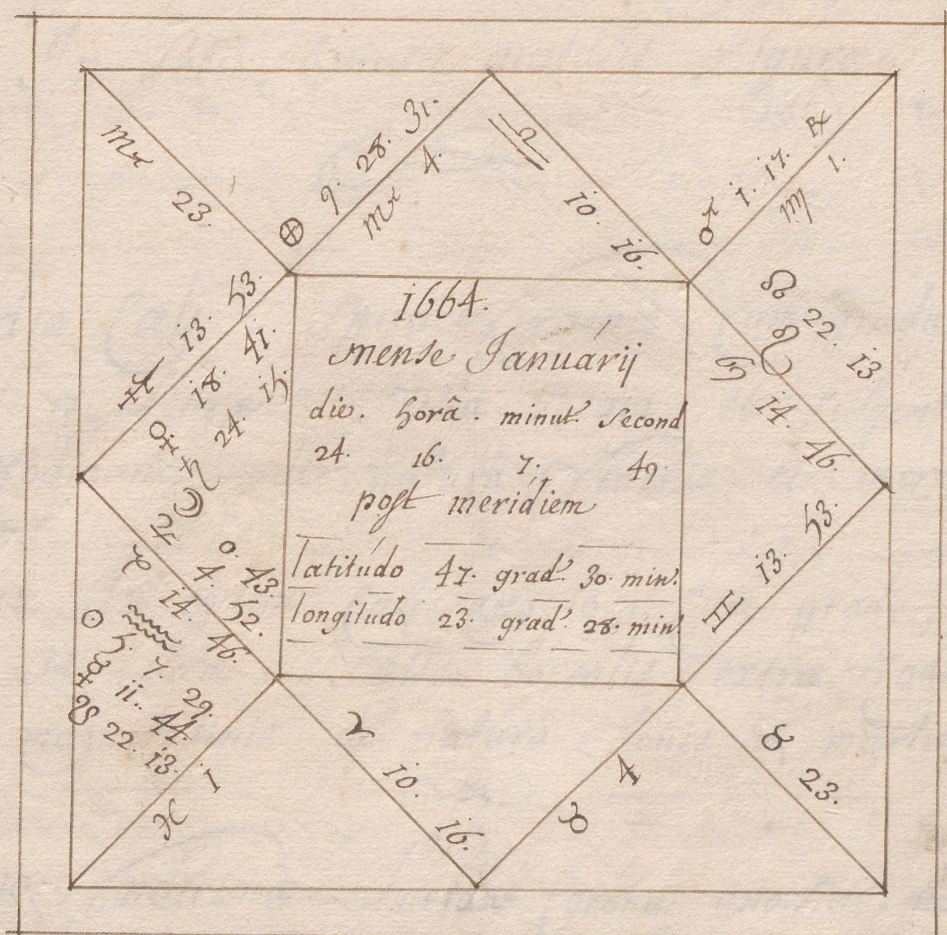 ♏ 23.
⊕ 9. 28. 31.
♏ 4.
♎ 10. 16.
♂ 1. 17. ℞
♍ 1.
☊ 22. 13
♌
14. 46.
♊ 13. 53.
♐ 13. 53.
♀ 18. 41.
♄ 24. 15.
☽ 0. 43.
♃ 4. 52.
14. 46.
☉ 5. 7. 29.
♒
☿ 11. 44.
☋ 22. 13.
♓ 1
♈ 10. 16.
♉ 4
♉ 23.
1664.
mense Januárij
die. horâ. minut. second
24. 16. 7. 49
post merídiem
latitúdo 47. grad. 30. min.
longitúdo 23. grad. 28. min.